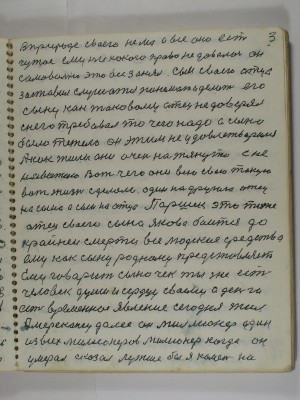 3
В природе своего нема а все оно есть
чужое ему никакого право не довалося он
самовольно это все занял. Сын своего отца
заставил слушатся начинал делать его
сыну как таковому отец не доверял
с него требовал то чего надо а сыно
было тяжело он этим не удовлетворялся
А как жили они очен натянуто с не
Вот чего они в по свою такую
вот жизн сделали. один на другого отец
на сына а сын на отца Паршек это тоже
отец своего сына Якова боится до
крайней смерти все людские средства
ему как сыну родному представляет
Ему говорит сыночек ты же есть
человек души и сердца своего а денги
ест временное явление сегодня жил
Американец далее он миллионер один
из всех миллионеров милионер когда он
умирал сказал лутше бы я камен на